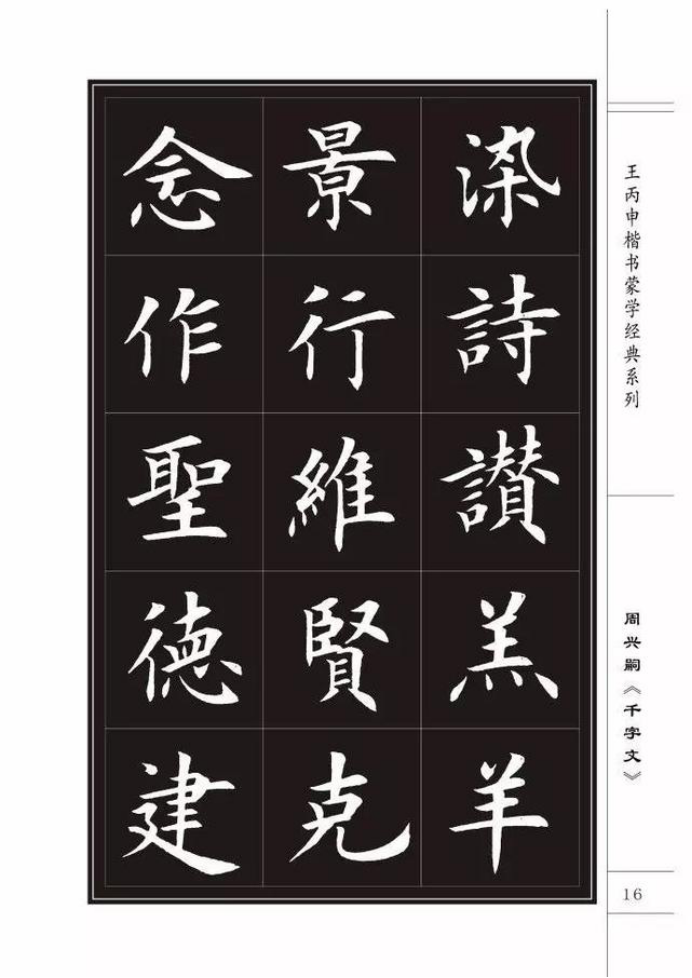 染詩讃羔羊
景行維賢克
念作聖德建
王丙申楷书蒙学经典系列
周兴嗣《千字文》
16